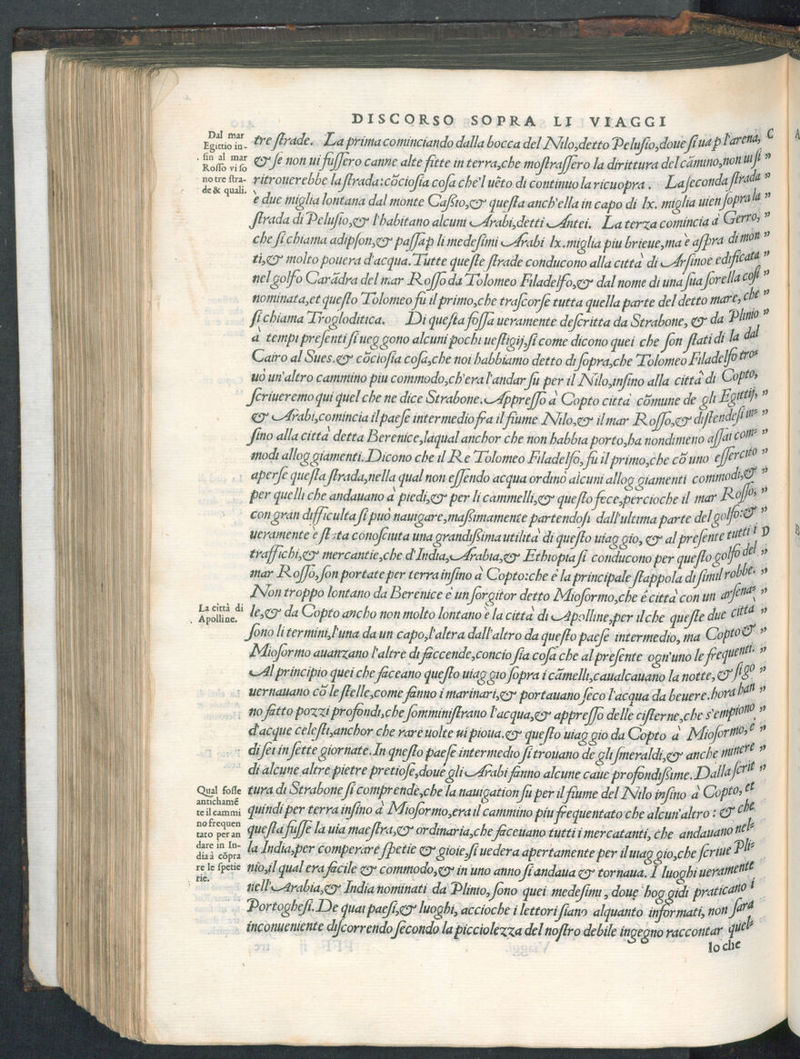 DISCORSO SOPRA LI VIAGGI
Dal mar
Egittio in-
fin al mar
Rosso vi so
no tre stra-
de & quali.
tre strade. La prima cominciando dalla bocca del Nilo,detto Pelusio,doue si ua p l'arena, C
& se non ui fussero canne alte fitte in terra,che mostrassero la dirittura del cãmino,non ui si ”
ritrouerebbe la strada:cõciosia cosa che'l uẽto di continuo la ricuopra. La seconda strada ”
è due miglia lontana dal monte Cassio,& questa anch'ella in capo di lx. miglia uien sopra la ”
strada di Pelusio,& l'habitano alcuni Arabi,detti Antei. La terza comincia à Gerro, ”
che si chiama adipson,& passa p li medesimi Arabi lx.miglia piu brieue,ma è aspra di mon ”
ti,& molto pouera d'acqua. Tutte queste strade conducono alla città di Arsinoe edificata ”
nel golfo Carãdra del mar Rosso da Tolomeo Filadelfo,& dal nome di una sua sorella cosi ”
nominata,et questo Tolomeo fu il primo,che trascorse tutta quella parte del detto mare, che ”
si chiama Trogloditica. Di questa fossa ueramente descritta da Strabone, & da Plinio ”
à tempi presenti si ueggono alcuni pochi uestigij,si come dicono quei che son stati di la dal
Cairo al Sues.& cõciosia cosa,che noi habbiamo detto di sopra,che Tolomeo Filadelfo tro-
uò un'altro cammino piu commodo,ch'era l'andar su per il Nilo,insino alla città di Copto,
scriueremo qui quel che ne dice Strabone. Appresso à Copto città cõmune de gli Egittij, ”
& Arabi,comincia il paese intermedio fra il fiume Nilo,& il mar Rosso,& distendesi in- ”
sino alla città detta Berenice,laqual anchor che non habbia porto,ha nondimeno assai com- ”
modi alloggiamenti. Dicono che il Re Tolomeo Filadelfo, fu il primo,che cõ uno essercito ”
aperse questa strada,nella qual non essendo acqua ordinò alcuni alloggiamenti commodi,& ”
per quelli che andauano à piedi,& per li cammelli,& questo fece,percioche il mar Rosso, ”
con gran difficulta si può nauigare,massimamente partendosi dall'ultima parte del golfo:& ”
ueramente è stata conosciuta una grandissima utilità di questo uiaggio, & al presente tutti i D
traffichi,& mercantie,che d'India,Arabia,& Ethiopia si conducono per questo golfo del ”
mar Rosso,son portate per terra insino à Copto:che è la principale stappola di simil robbe. ”
Non troppo lontano da Berenice è un sorgitor detto Miosormo,che è città con un arsena- ”
La città di
Apolline.
le,& da Copto ancho non molto lontano è la città di Apolline,per il che queste due città ”
sono li termini,l'una da un capo,l'altra dall'altro da questo paese intermedio, ma Copto & ”
Miosormo auanzano l'altre di faccende,concio sia cosa che al presente ogn'uno le frequenti. ”
Al principio quei che faceano questo uiaggio sopra i cãmelli,caualcauano la notte, & si go ”
uernauano cõ le stelle,come fanno i marinari,& portauano seco l'acqua da beuere.hora han ”
no fatto pozzi profondi,che somministrano l'acqua,& appresso delle cisterne,che s'empiono ”
d'acque celesti,anchor che rare uolte ui pioua.& questo uiaggio da Copto à Miosormo,è ”
di sei in sette giornate.In qnesto paese intermedio si trouano de gli smeraldi,& anche minere ”
di alcune altre pietre pretiose,doue gli Arabi fanno alcune caue profondissime.Dalla scrit ”
Qual fosse
antichamẽ
te il cammi
no frequen
tato per an
dare in In-
dia à cõpra
re le spetie
rie.
tura di Strabone si comprende,che la nauigation su per il fiume del Nilo insino à Copto, et
quindi per terra insino à Miosormo,era il cammino piu frequentato che alcun'altro : & che
questa fusse la uia maestra,& ordinaria,che faceuano tutti i mercatanti, che andauano nel-
la India,per comperare spetie & gioie,si uedera apertamente per il uiaggio,che scriue Pli-
nio,il qual era facile & commodo,& in uno anno si andaua & tornaua. I luoghi ueramente
nell'Arabia,& India nominati da Plinio, sono quei medesimi, doue hoggidi praticano i
Portoghesi.De quai paesi,& luoghi, accioche i lettori siano alquanto informati, non sarà
inconueniente discorrendo secondo la picciolezza del nostro debile ingegno raccontar quel-
lo che